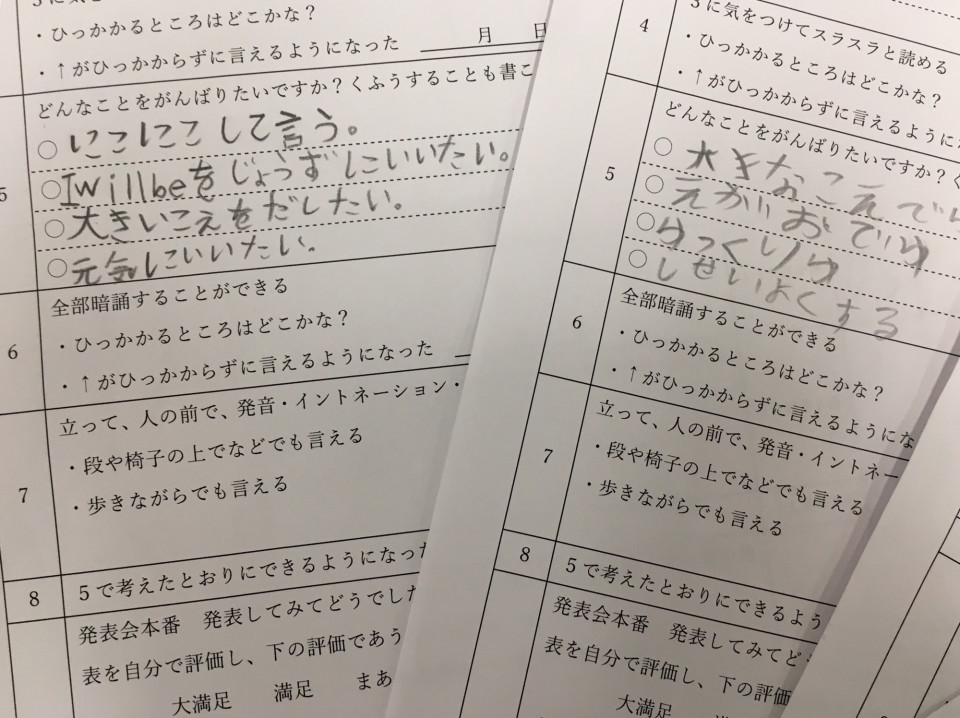 ・ひっかかるところはどこかな？
・↑がひっかからずに言えるようになった 月 日
5
どんなことをがんばりたいですか？くふうすることも書こ
○にこにこして言う。
○I will beをじょうずにいいたい。
○大きいこえをだしたい。
○元気にいいたい。
6
全部暗誦することができる
・ひっかかるところはどこかな？
・↑がひっかからずに言えるようになった
7
立って、人の前で、発音・イントネーション・
・段や椅子の上でなどでも言える
・歩きながらでも言える
8
５で考えたとおりにできるようになった
発表会本番 発表してみてどうでした
表を自分で評価し、下の評価であう
大満足 満足 まあ
4
3に気をつけてスラスラと読める
・ひっかかるところはどこかな？
・↑がひっかからずに言えるようにな
5
どんなことをがんばりたいですか？く
○大きなこえで
○えがおで
○ゆっくり
○しせいよくする
6
全部暗誦することができる
・ひっかかるところはどこかな？
・↑がひっかからずに言えるようにな
7
立って、人の前で、発音・イントネー
・段や椅子の上でなどでも言える
・歩きながらでも言える
8
５で考えたとおりにできるよう
発表会本番 発表してみてど
表を自分で評価し、下の評価
大満足